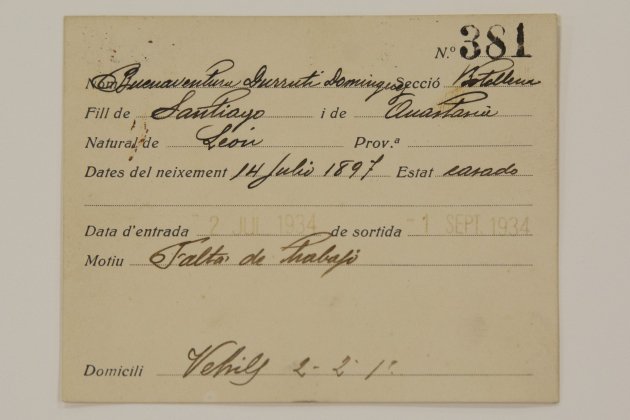 N.º 381
Nom Buenaventura Durruti Dominguez Secció
Fill de Santiago i de Anastasia
Natural de León Prov.ª
Dates del neixement 14 Julio 1897 Estat casado
Data d'entrada 2 JUL. 1934 de sortida -1 SEPT. 1934
Motiu Falta de trabajo
Domicili 2-2-1ª